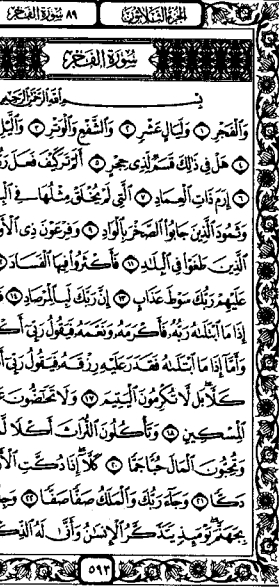 ٨٩ سُورَةُ الفَجْرِ الجُزءُ الثَّلَاثُونَ
سُورَةُ الفَجْرِ
بِسْمِ اللَّهِ الرَّحْمَٰنِ الرَّحِيمِ
وَالْفَجْرِ ١ وَلَيَالٍ عَشْرٍ ٢ وَالشَّفْعِ وَالْوَتْرِ ٣ وَاللَّيْلِ
٤ هَلْ فِي ذَٰلِكَ قَسَمٌ لِّذِي حِجْرٍ ٥ أَلَمْ تَرَ كَيْفَ فَعَلَ رَبُّ
٦ إِرَمَ ذَاتِ الْعِمَادِ ٧ الَّتِي لَمْ يُخْلَقْ مِثْلُهَا فِي الْبِ
وَثَمُودَ الَّذِينَ جَابُوا الصَّخْرَ بِالْوَادِ ٩ وَفِرْعَوْنَ ذِي الْأَوْ
الَّذِينَ طَغَوْا فِي الْبِلَادِ ١١ فَأَكْثَرُوا فِيهَا الْفَسَادَ
عَلَيْهِمْ رَبُّكَ سَوْطَ عَذَابٍ ١٣ إِنَّ رَبَّكَ لَبِالْمِرْصَادِ ١٤
إِذَا مَا ابْتَلَاهُ رَبُّهُ فَأَكْرَمَهُ وَنَعَّمَهُ فَيَقُولُ رَبِّي أَكْ
وَأَمَّا إِذَا مَا ابْتَلَاهُ فَقَدَرَ عَلَيْهِ رِزْقَهُ فَيَقُولُ رَبِّي أَ
كَلَّا بَل لَّا تُكْرِمُونَ الْيَتِيمَ ١٧ وَلَا تَحَاضُّونَ عَ
الْمِسْكِينِ ١٨ وَتَأْكُلُونَ التُّرَاثَ أَكْلًا لَّ
وَتُحِبُّونَ الْمَالَ حُبًّا جَمًّا ٢٠ كَلَّا إِذَا دُكَّتِ الْأَ
دَكًّا ٢١ وَجَاءَ رَبُّكَ وَالْمَلَكُ صَفًّا صَفًّا ٢٢ وَجِ
بِجَهَنَّمَ يَوْمَئِذٍ يَتَذَكَّرُ الْإِنسَانُ وَأَنَّىٰ لَهُ الذِّكْ
٥٩٣